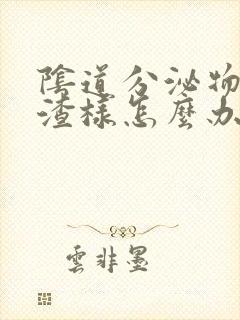 陰道分泌物
渣樣怎麼办
雲非墨